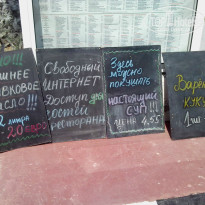 ШНЕЕ
ИВКОВОЕ
АСЛО!!!
2 ЛИТРА
20 ЕВРО
Свободный
ИНТЕРНЕТ
Доступ для
гостей
ресторана
Здесь
можно
покушать
настоящий
СУП!!!
ЦЕНА 4,55
Варен
КУКУ
1 шт